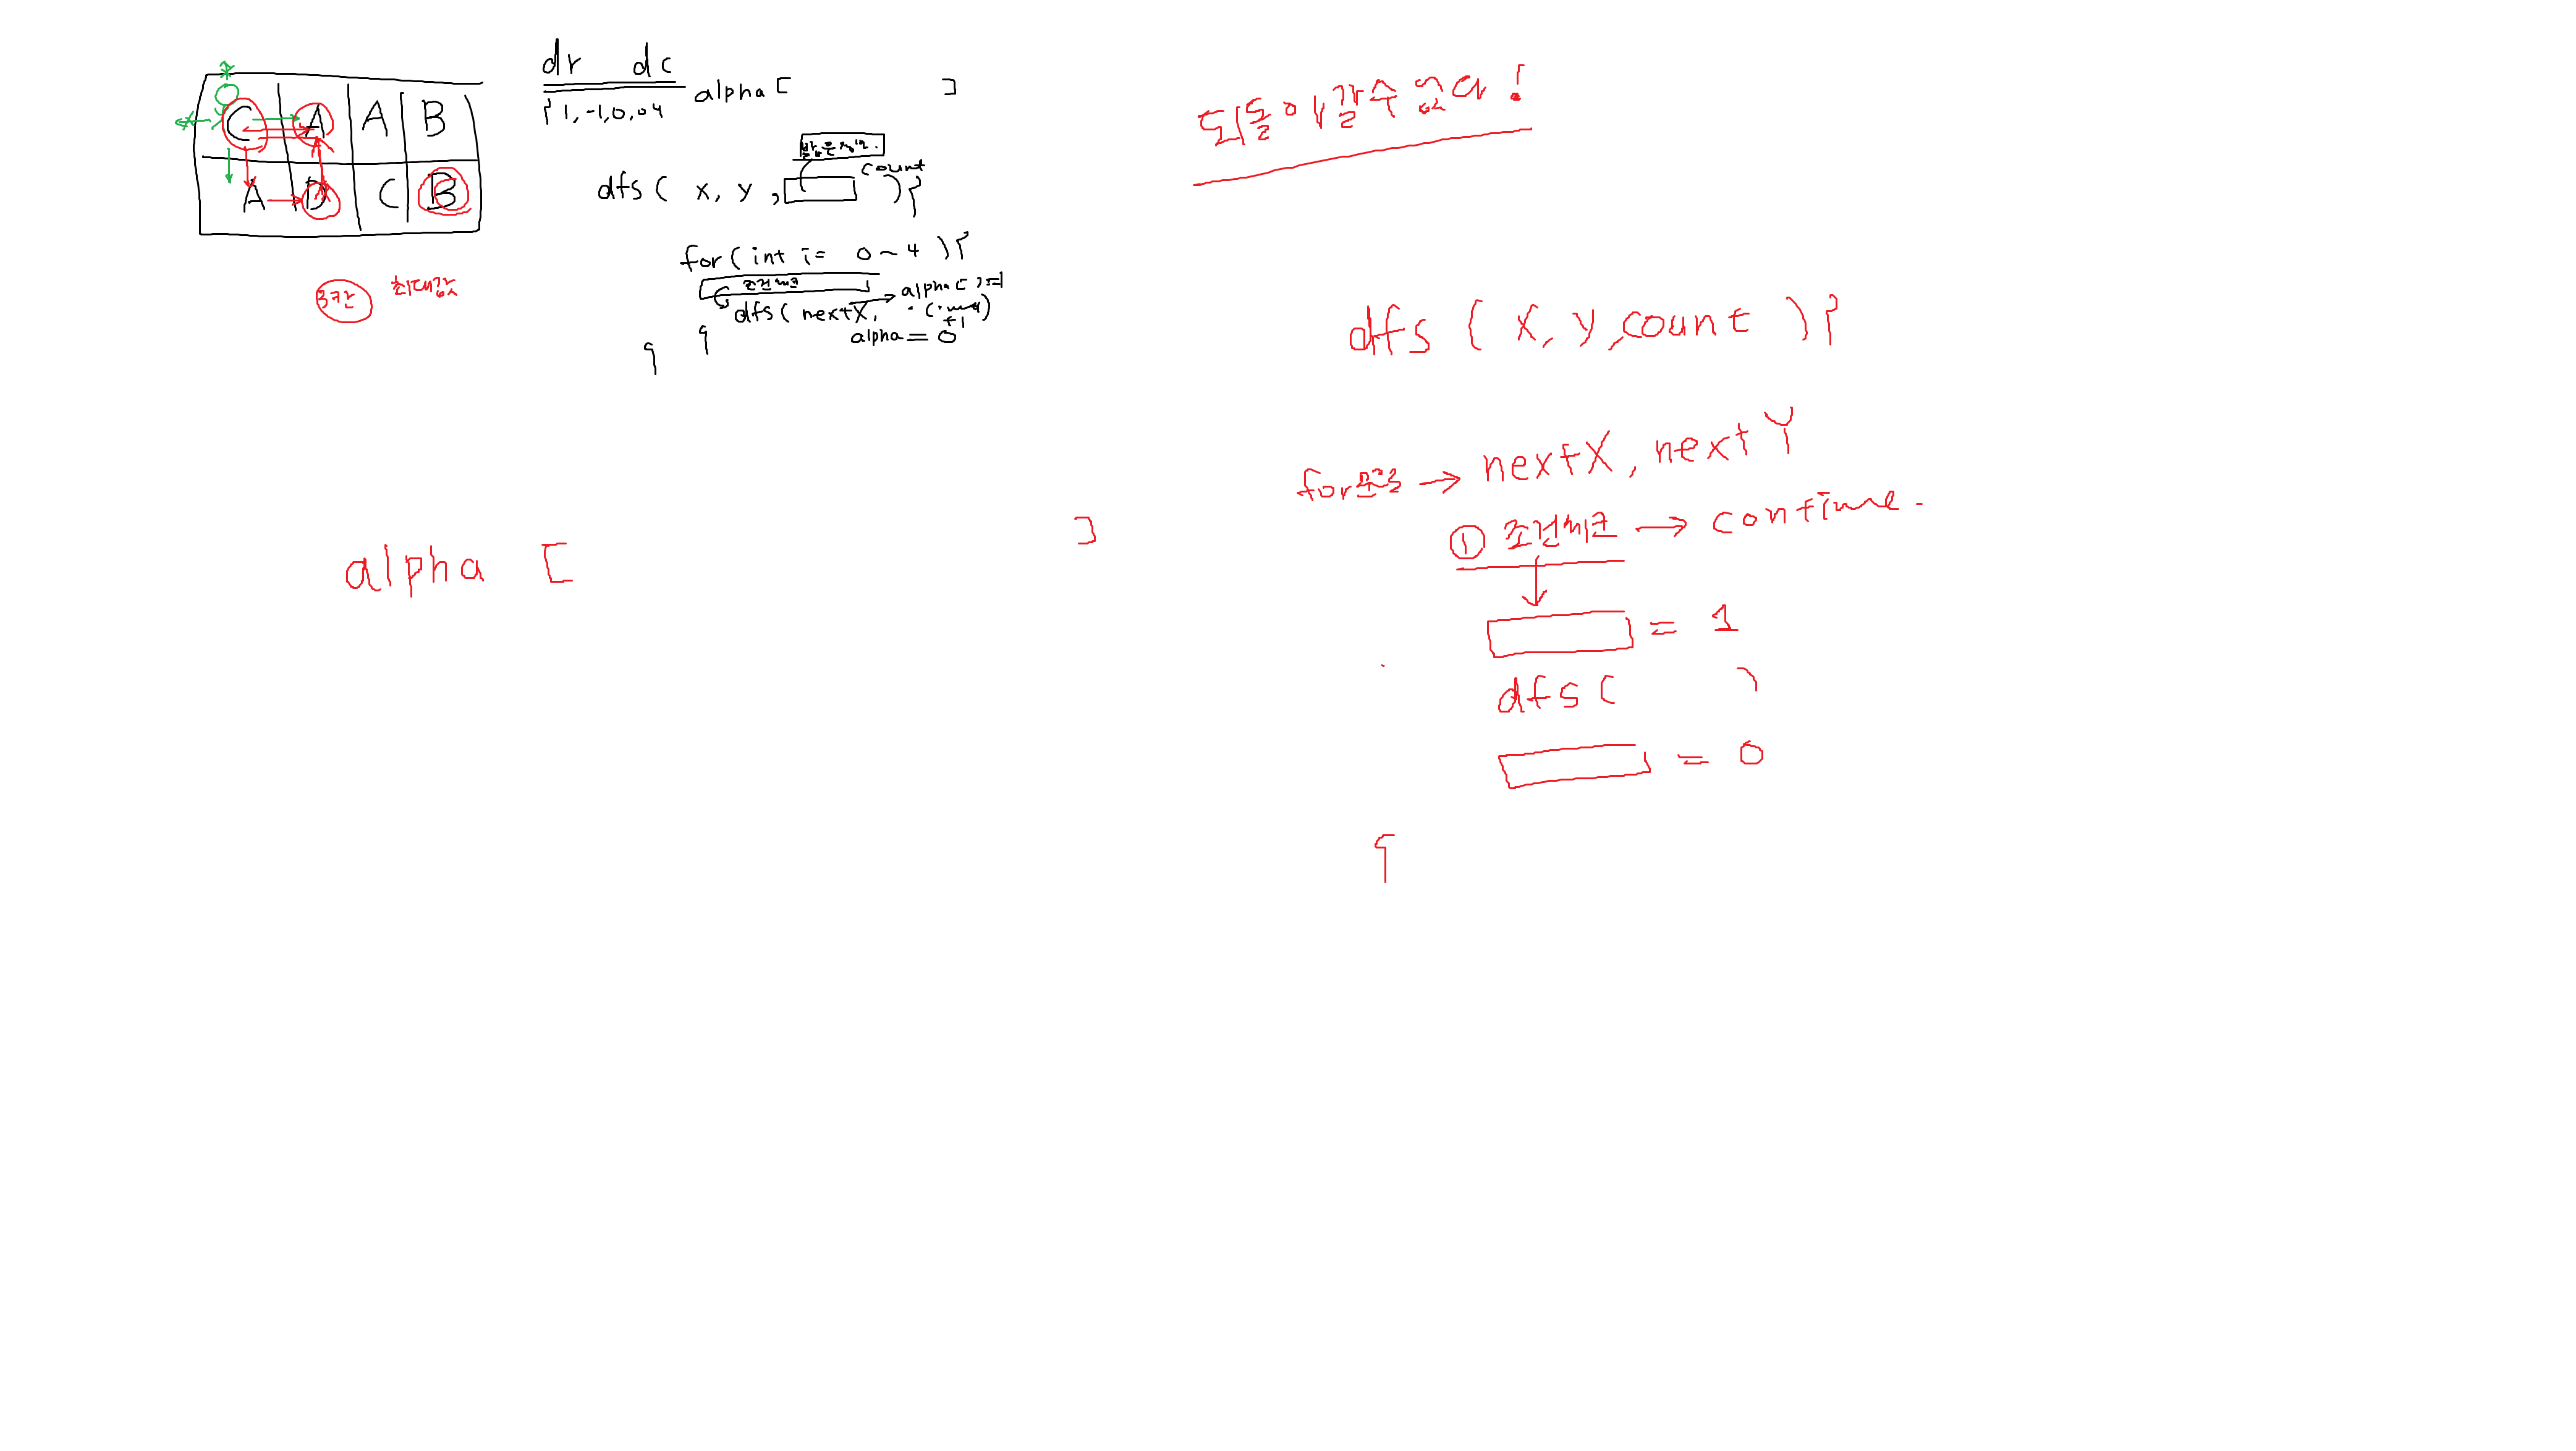 C A A B
A D C B
3칸 최대값
dr dc
{1,-1,0,0} alpha[ ]
count
dfs( x, y, ){
for(int i= 0~4 ){
조건체크
alpha[ ]=1
dfs( nextX,
+1
alpha=0
}
}
alpha [ ]
되돌아갈수 없다!
dfs ( x, y, count ){
for문 → nextX, nextY
① 조건체크 → continue.
= 1
dfs( )
= 0
}